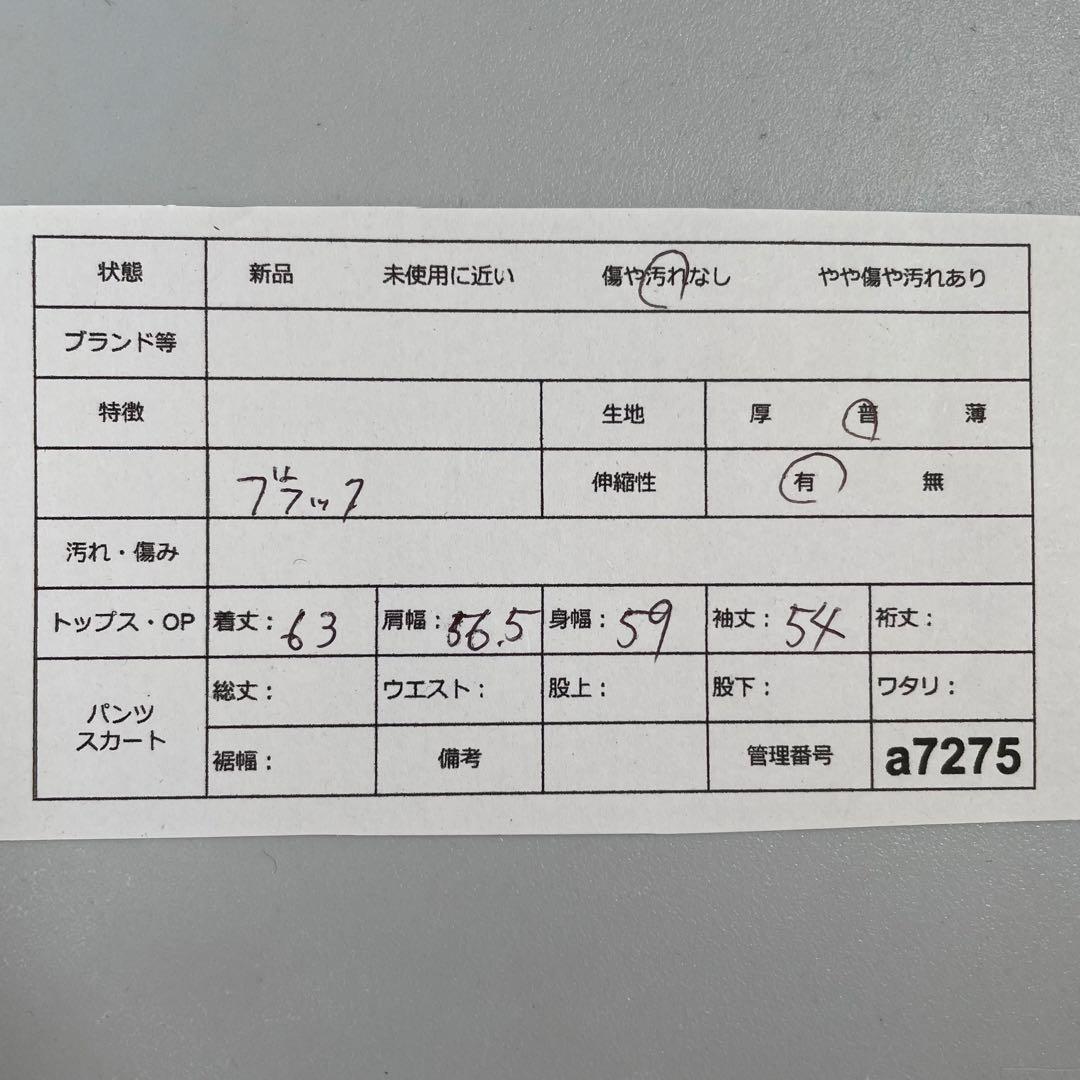 状態 新品 未使用に近い 傷や汚れなし やや傷や汚れあり
ブランド等
特徴 生地 厚 普 薄
ブラック 伸縮性 有 無
汚れ・傷み
トップス・OP 着丈：63 肩幅：56.5 身幅：59 袖丈：54 裄丈：
パンツ スカート 総丈： ウエスト： 股上： 股下： ワタリ：
裾幅： 備考 管理番号 a7275